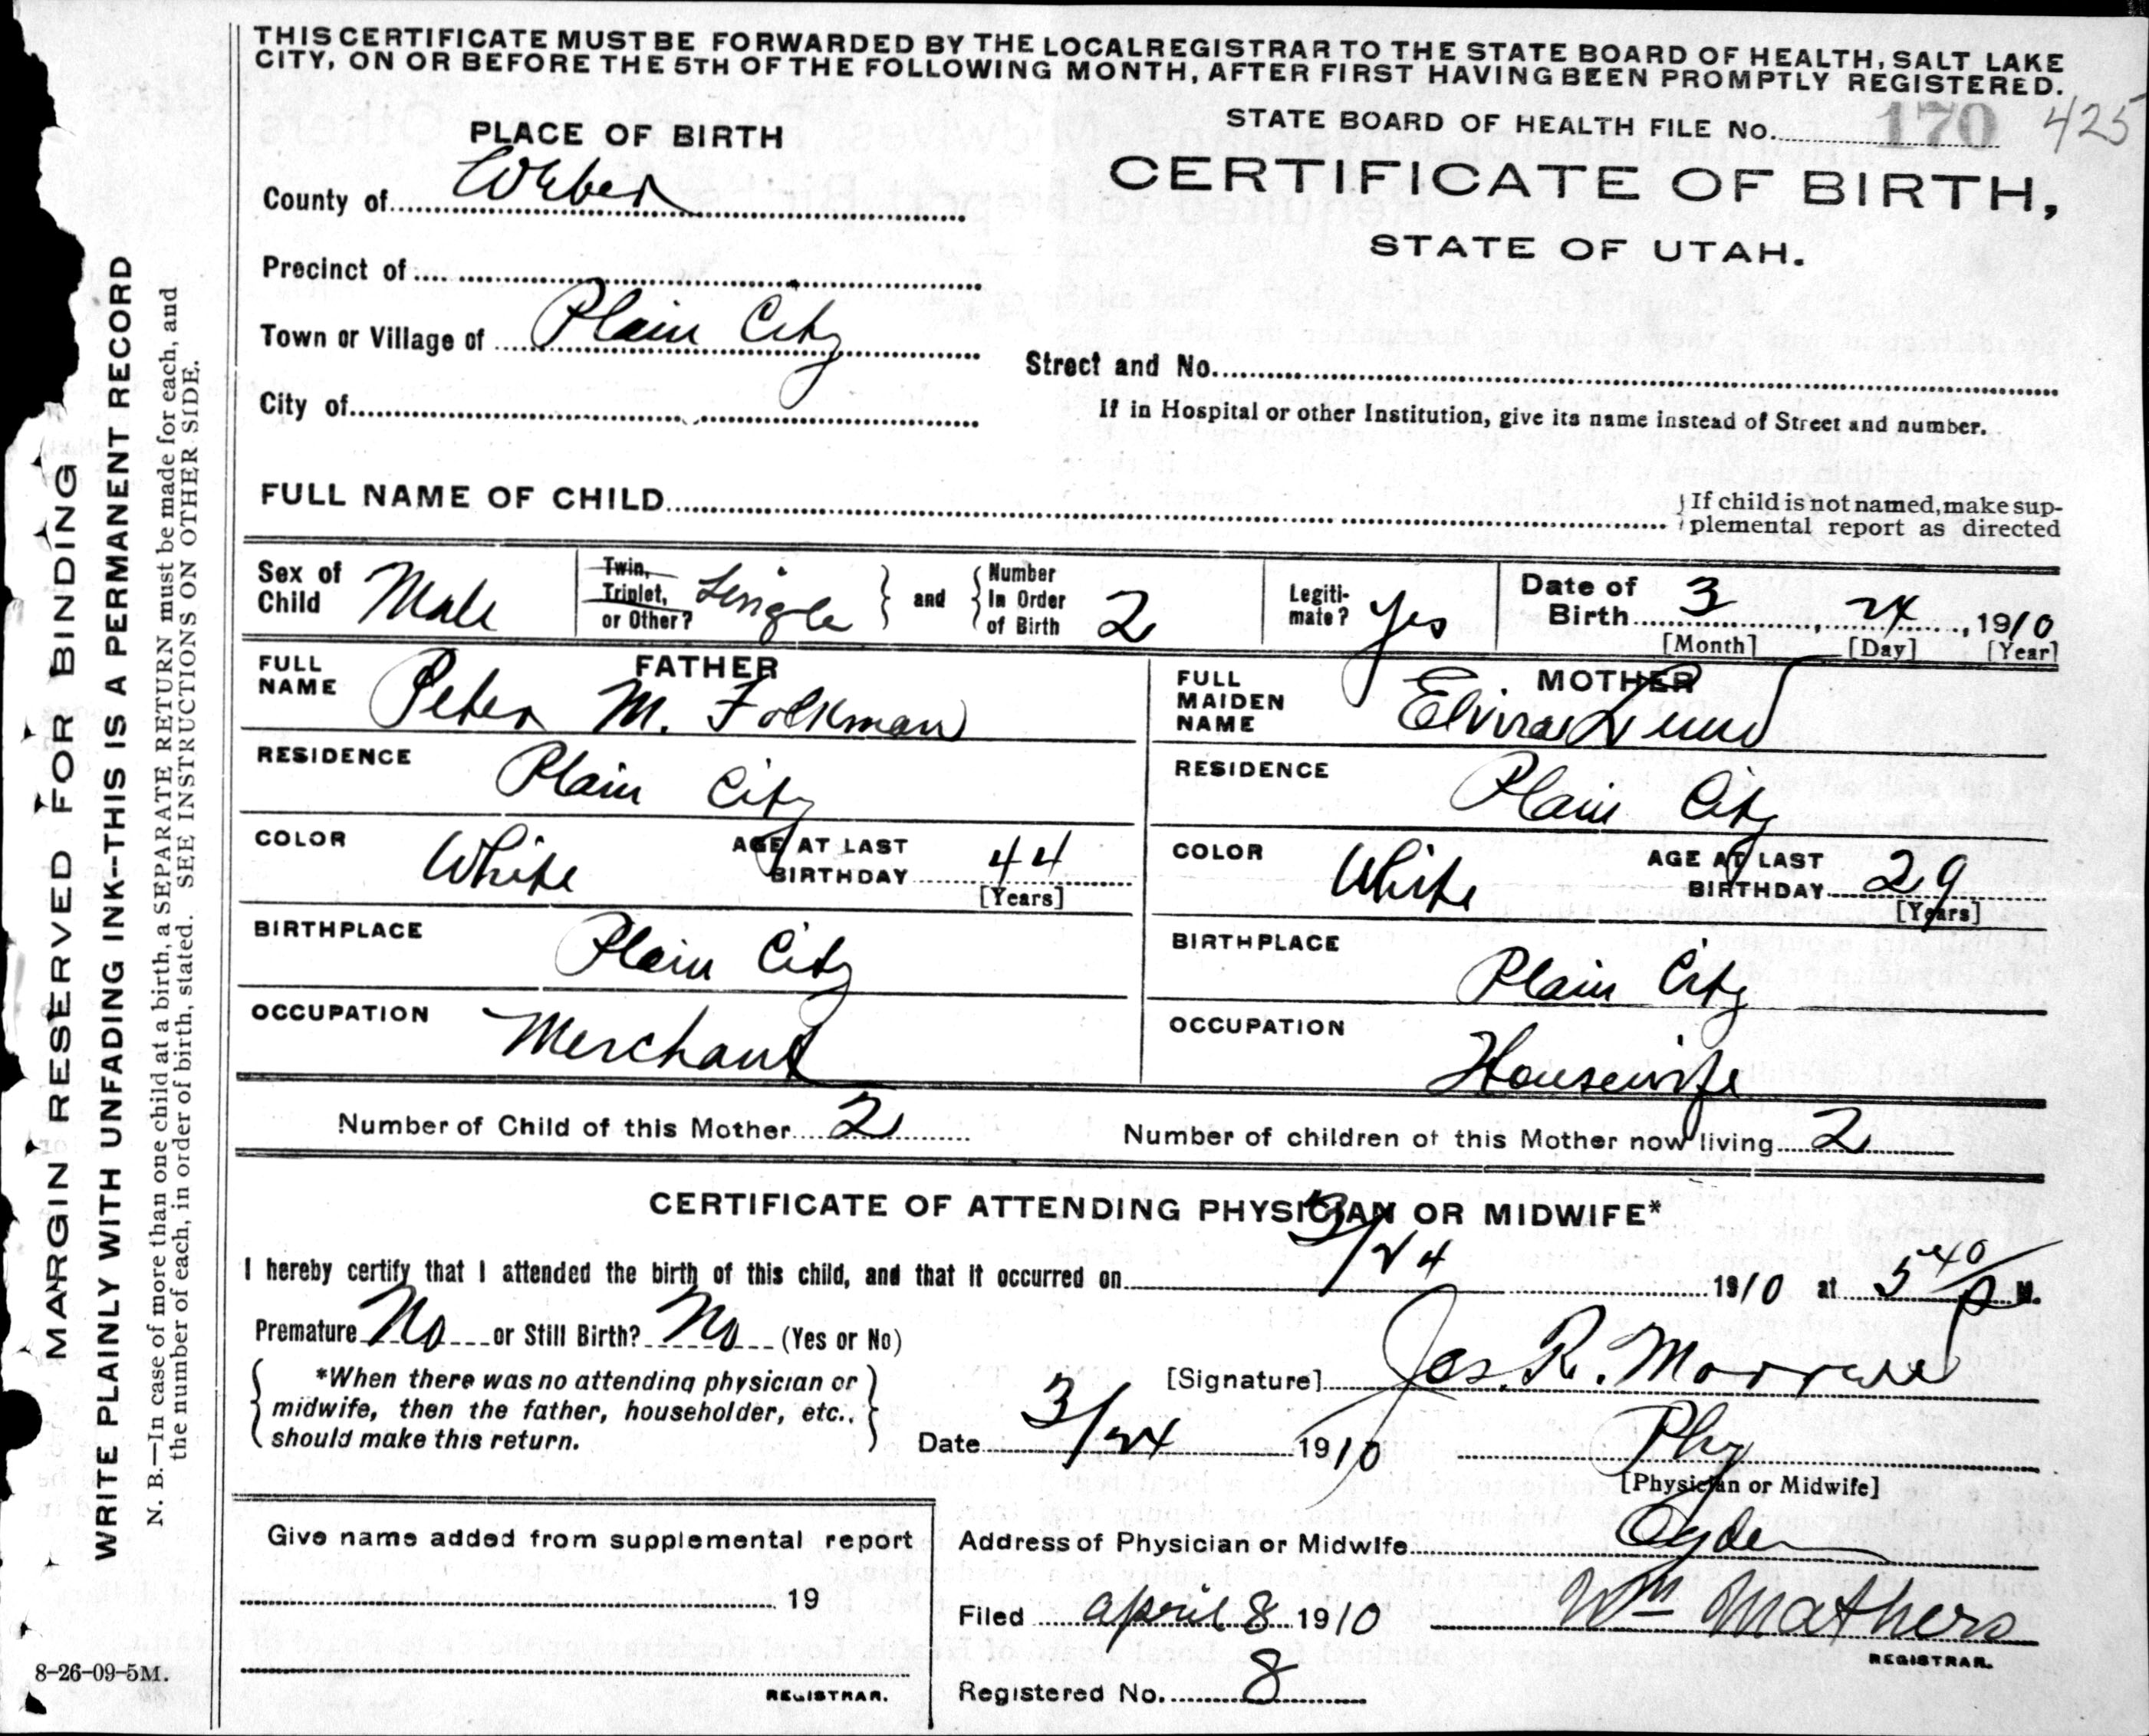 THIS CERTIFICATE MUST BE FORWARDED BY THE LOCAL REGISTRAR TO THE STATE BOARD OF HEALTH, SALT LAKE
CITY, ON OR BEFORE THE 5TH OF THE FOLLOWING MONTH, AFTER FIRST HAVING BEEN PROMPTLY REGISTERED.
STATE BOARD OF HEALTH FILE No. 170 425
PLACE OF BIRTH
CERTIFICATE OF BIRTH,
STATE OF UTAH.
County of Weber
Precinct of
Town or Village of Plain City
Street and No.
City of
If in Hospital or other Institution, give its name instead of Street and number.
FULL NAME OF CHILD
If child is not named, make sup-
plemental report as directed
Sex of
Child Male
Twin,
Triplet,
or Other? Single
and
Number
In Order
of Birth 2
Legiti-
mate? Yes
Date of
Birth 3, 24, 1910
[Month] [Day] [Year]
FATHER
FULL
NAME Peter M. Folkman
MOTHER
FULL
MAIDEN
NAME Elvira Lund
RESIDENCE Plain City
RESIDENCE Plain City
COLOR White AGE AT LAST
BIRTHDAY 44
[Years]
COLOR White AGE AT LAST
BIRTHDAY 29
[Years]
BIRTHPLACE Plain City
BIRTHPLACE Plain City
OCCUPATION Merchant
OCCUPATION Housewife
Number of Child of this Mother 2 Number of children of this Mother now living 2
CERTIFICATE OF ATTENDING PHYSICIAN OR MIDWIFE*
I hereby certify that I attended the birth of this child, and that it occurred on 3/24 1910 at 5 40/P M.
Premature No or Still Birth? No (Yes or No)
*When there was no attending physician or
midwife, then the father, householder, etc.,
should make this return.
[Signature] Jos. R. Morrell
Date 3/24 1910 Phy
[Physician or Midwife]
Give name added from supplemental report
19
REGISTRAR.
Address of Physician or Midwife Ogden
Filed april 8 1910 Wm Mathers
REGISTRAR.
Registered No. 8
8-26-09-5M.
MARGIN RESERVED FOR BINDING
WRITE PLAINLY WITH UNFADING INK--THIS IS A PERMANENT RECORD
N. B.—In case of more than one child at a birth, a SEPARATE RETURN must be made for each, and
the number of each, in order of birth, stated. SEE INSTRUCTIONS ON OTHER SIDE.